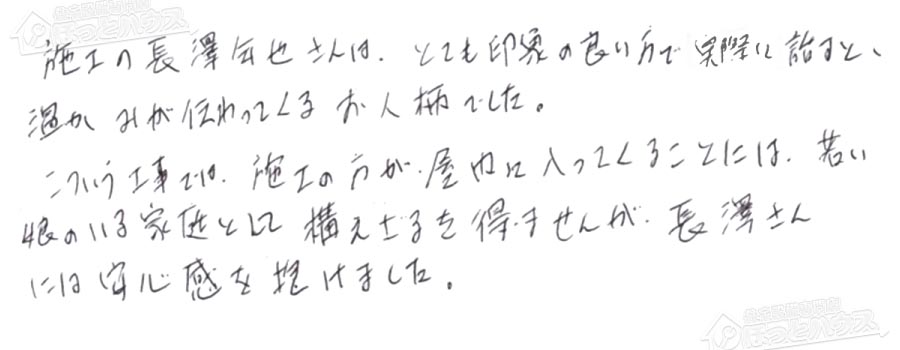 施工の長澤さんは、とても印象の良い方で実際に話すと、
温かみが伝わってくるお人柄でした。
こういう工事では、施工の方が、屋内に入ってくることには、若い
娘のいる家庭として構えざるを得ませんが、長澤さん
には安心感を抱けました。
ほっとハウス
ほっとハウス